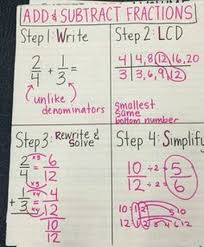 ADD & SUBTRACT FRACTIONS
Step 1: Write
2/4 + 1/3 =
unlike
denominators
Step 2: LCD
4 | 4, 8, 12, 16, 20
3 | 3, 6, 9, 12
smallest
same
bottom number
Step 3: Rewrite &
Solve
2/4 ×3 ×3 = 6/12
+ 1/3 ×4 ×4 = 4/12
10/12
Step 4: Simplify
10 ÷ 2 = 5
12 ÷ 2 = 6
10: 1 2 5 10
12: 1 2